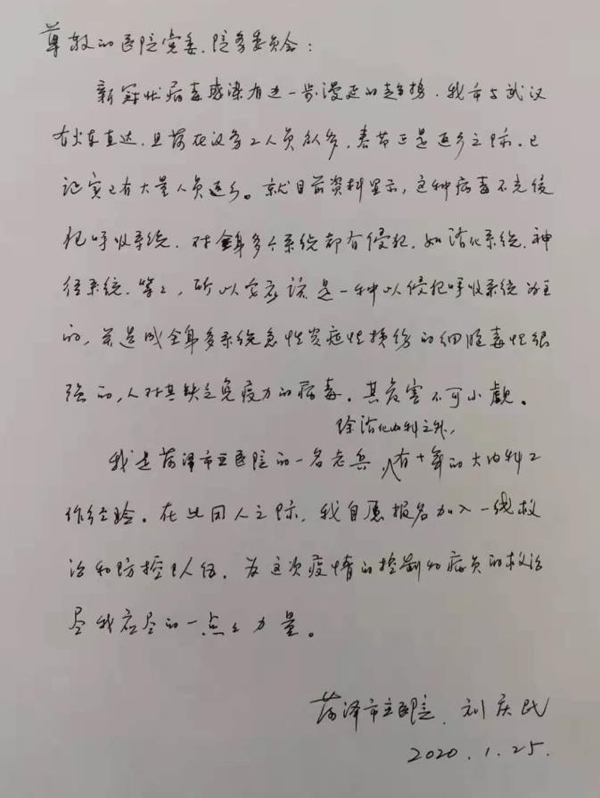 尊敬的医院党委、院务委员会:
新冠状病毒感染有进一步漫延的趋势,我市与武汉
有火车直达,且菏在汉务工人员众多,春节正是返乡之际,已
证实已有大量人员返乡。就目前资料显示,这种病毒不光侵
犯呼吸系统,对全身多个系统都有侵犯,如消化系统、神
经系统、等等,所以它应该是一种以侵犯呼吸系统为主
的,并造成全身多系统急性炎症性损伤的细胞毒性很
强的,人对其缺乏免疫力的病毒,其危害不可小觑。
除消化内科之外,
我是菏泽市立医院的一名老兵,有十年的大内科工
作经验。在此用人之际,我自愿报名加入一线救
治和防控队伍,为这次疫情的控制和病员的救治
尽我应尽的一点点力量。
菏泽市立医院、刘庆民
2020.1.25.